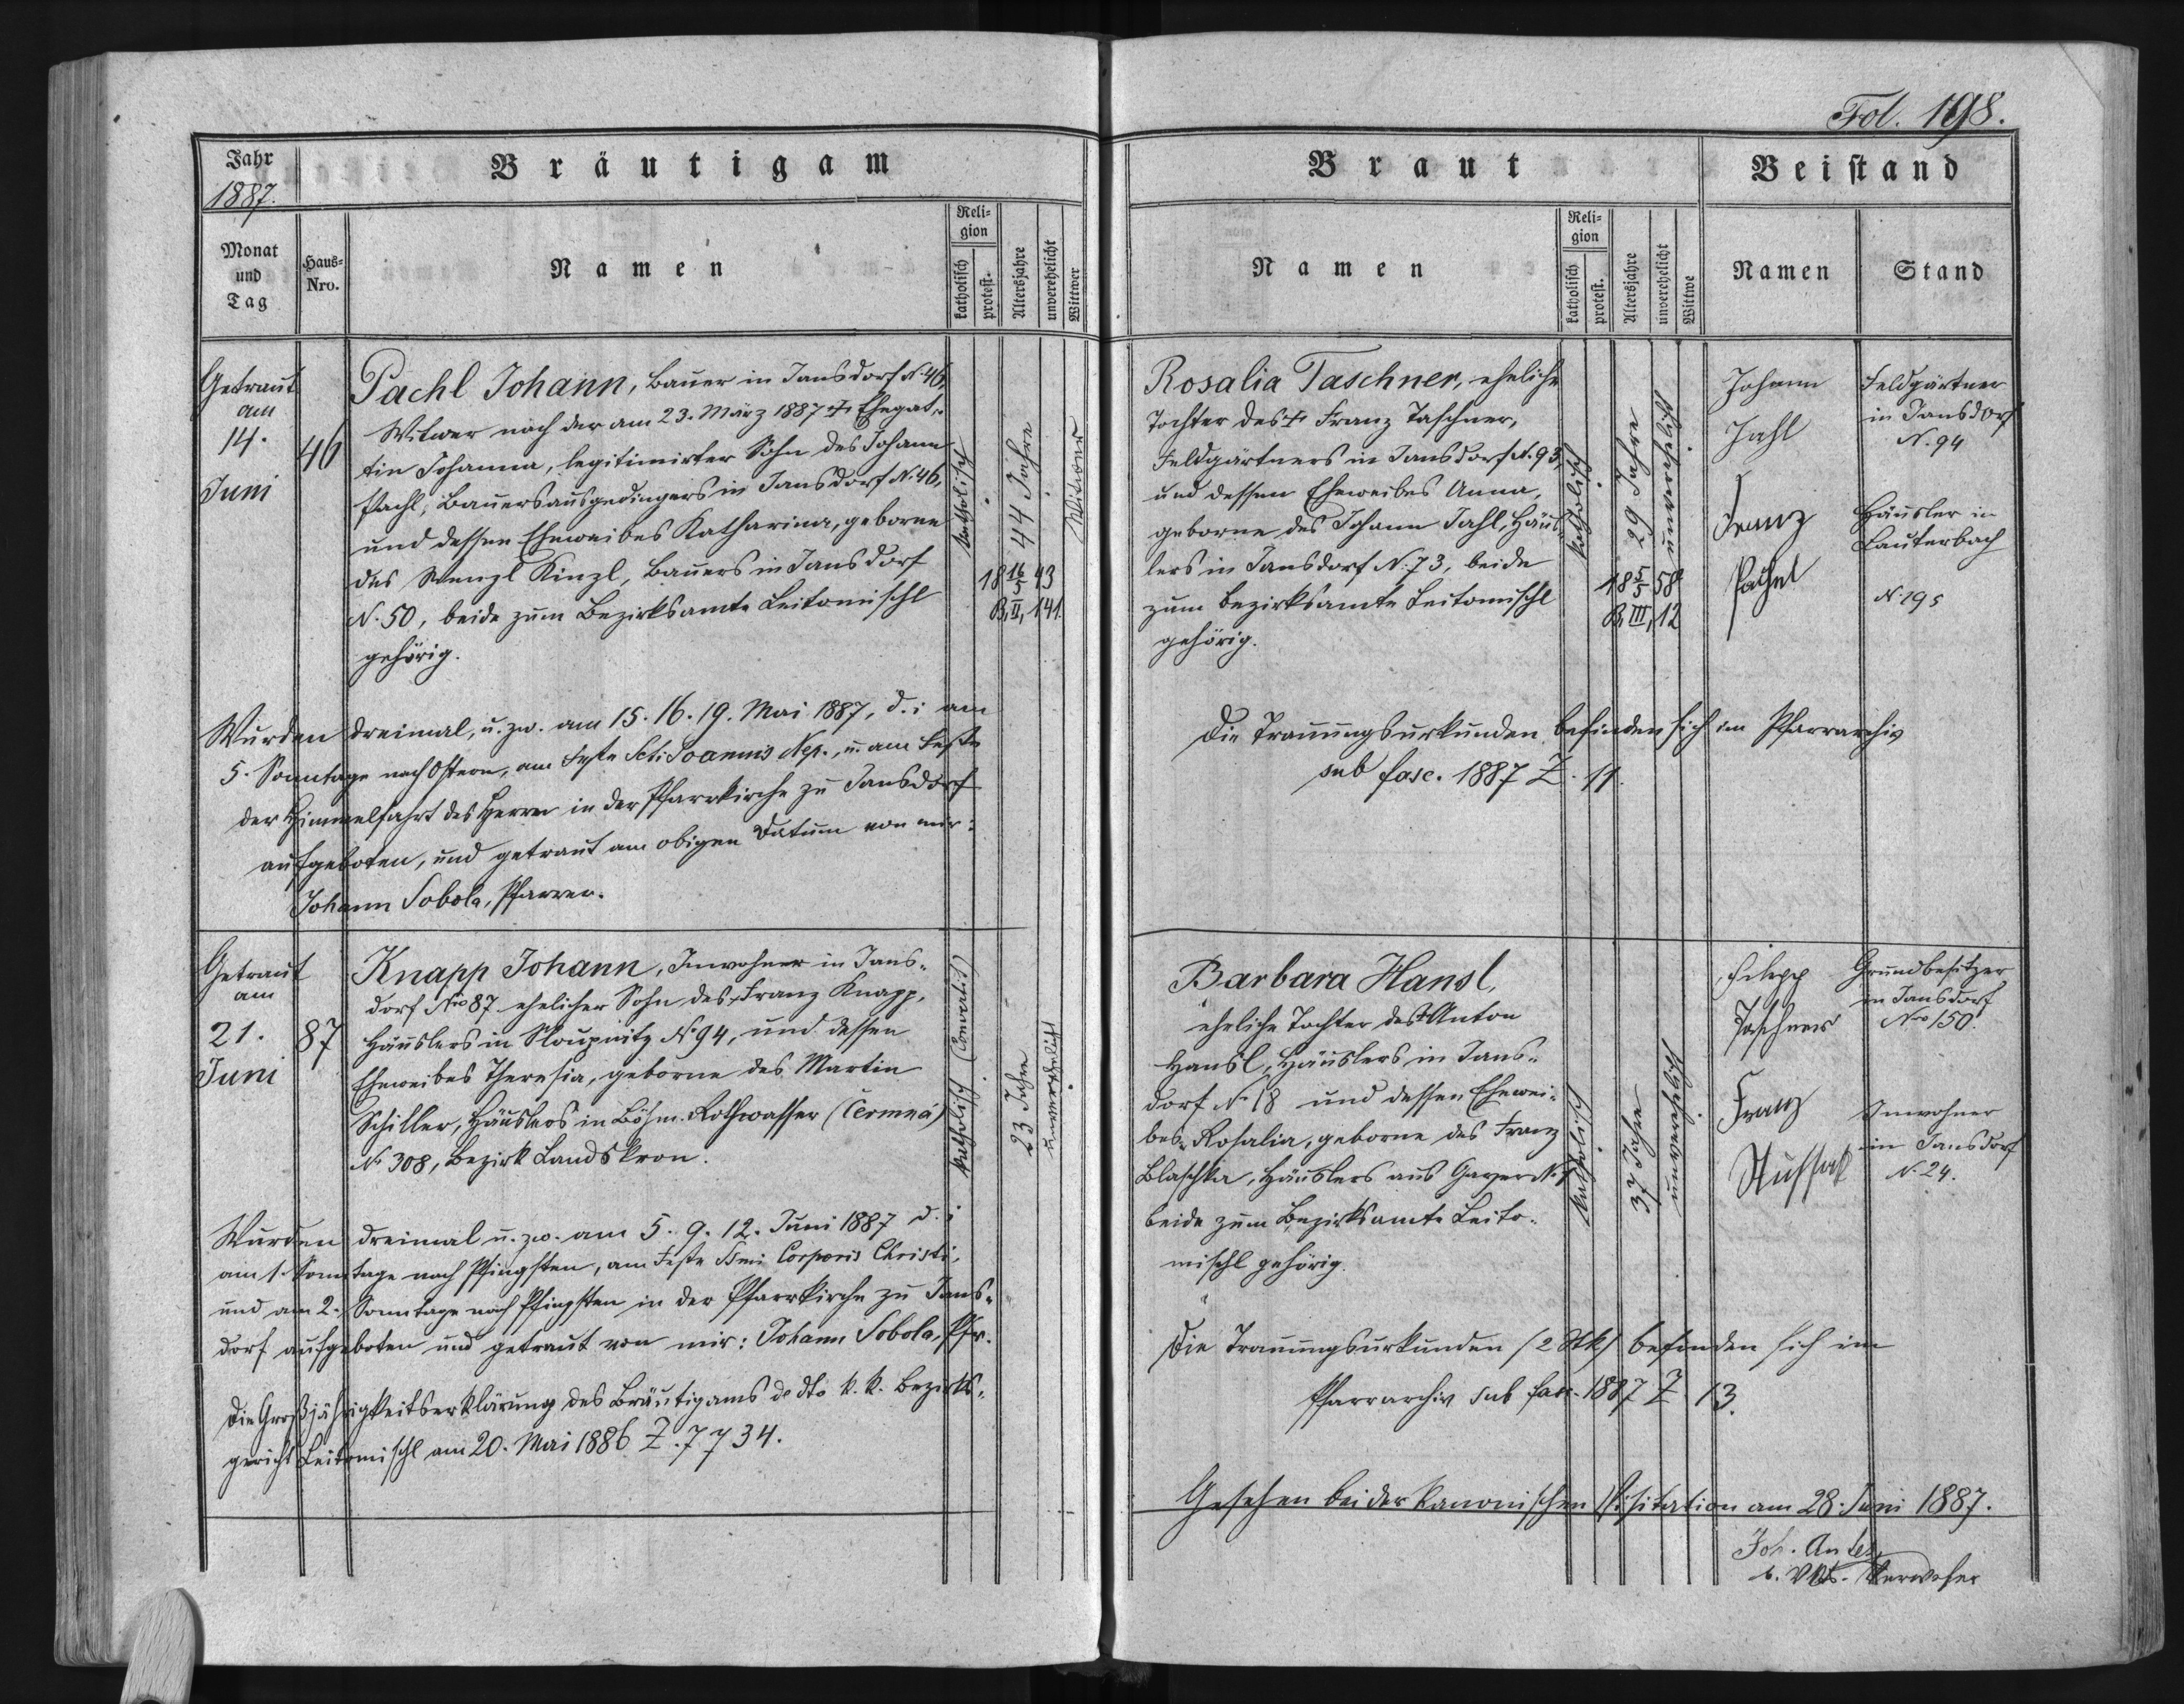 Fol. 198.
Jahr
1887.
Bräutigam
Monat
und
Tag
Haus-
Nro.
Namen
Reli-
gion
katholisch
protest.
Altersjahre
unverehelicht
Wittwer
Getraut
am
14.
Juni
46
Pachl Johann, Bauer in Jansdorf N. 46,
Witwer nach der am 23. März 1887 + Ehegat-
tin Johanna, legitimirter Sohn des Johann
Pachl, Bauersausgedingers in Jansdorf N. 46,
und dessen Eheweibes Katharina, geborne
des Wenzl Kinzl, Bauers in Jansdorf
N. 50, beide zum Bezirksamte Leitomischl
gehörig.
katholisch
44 Jahre
18 16/5 43
B, II, 141.
Witwer
Wurden dreimal, u. zw. am 15. 16. 19. Mai 1887, d. i am
5. Sonntage nach Ostern, am Feste Scti Joannis Nep., u. am Feste
der Himmelfahrt des Herrn in der Pfarrkirche zu Jansdorf
aufgeboten, und getraut am obigen Datum von mir:
Johann Sobola, Pfarrer.
Getraut
am
21.
Juni
87
Knapp Johann, Inwohner in Jans-
dorf Nro 87 ehelicher Sohn des + Franz Knapp,
Häuslers in Sloupnitz N. 94, und dessen
Eheweibes Theresia, geborne des Martin
Schiller, Häuslers in Böhm. Rothwasser (Čermná)
N. 308, Bezirk Landskron.
katholisch (Convertit)
23 Jahre
unverehelicht
Wurden dreimal u. zw. am 5. 9. 12. Juni 1887 d. i
am 1. Sonntage nach Pfingsten, am Feste Ssmi Corporis Christi,
und am 2. Sonntage nach Pfingsten in der Pfarrkirche zu Jans-
dorf aufgeboten und getraut von mir: Johann Sobola, Pfr.
Die Großjährigkeitserklärung des Bräutigams de dto k. k. Bezirks-
gericht Leitomischl am 20. Mai 1886 Z. 7734.
Braut
Beistand
Namen
Reli-
gion
katholisch
protest.
Altersjahre
unverehelicht
Wittwe
Namen
Stand
Rosalia Taschner, eheliche
Tochter des + Franz Taschner,
Feldgärtners in Jansdorf N. 93,
und dessen Eheweibes Anna,
geborne des Johann Jahl, Häus-
lers in Jansdorf N. 73, beide
zum Bezirksamte Leitomischl
gehörig.
katholisch
29 Jahre
18 5/5 58
B, III, 12
unverehelicht
Johann
Jahl
Feldgärtner
in Jansdorf
N. 94
Franz
Pachel
Häusler in
Lauterbach
N. 195
Die Trauungsurkunden befinden sich im Pfarrarchiv
sub fasc. 1887 Z. 11.
Barbara Hansl,
eheliche Tochter des + Anton
Hansl, Häuslers in Jans-
dorf N. 18 und dessen Ehewei-
bes Rosalia, geborne des Franz
Blaschka, Häuslers aus Gayer
beide zum Bezirksamte Leito-
mischl gehörig.
katholisch
37 Jahre
unverehelicht
Filipp
Taschner
Grundbesitzer
in Jansdorf
Nro 150.
Franz
Inwohner
in Jansdorf
N. 24.
Die Trauungsurkunden (2 Stk) befinden sich im
Pfarrarchiv sub fasc. 1887 Z 13.
Gesehen bei der kanonischen Visitation am 28. Juni 1887.
Joh.
Verweser